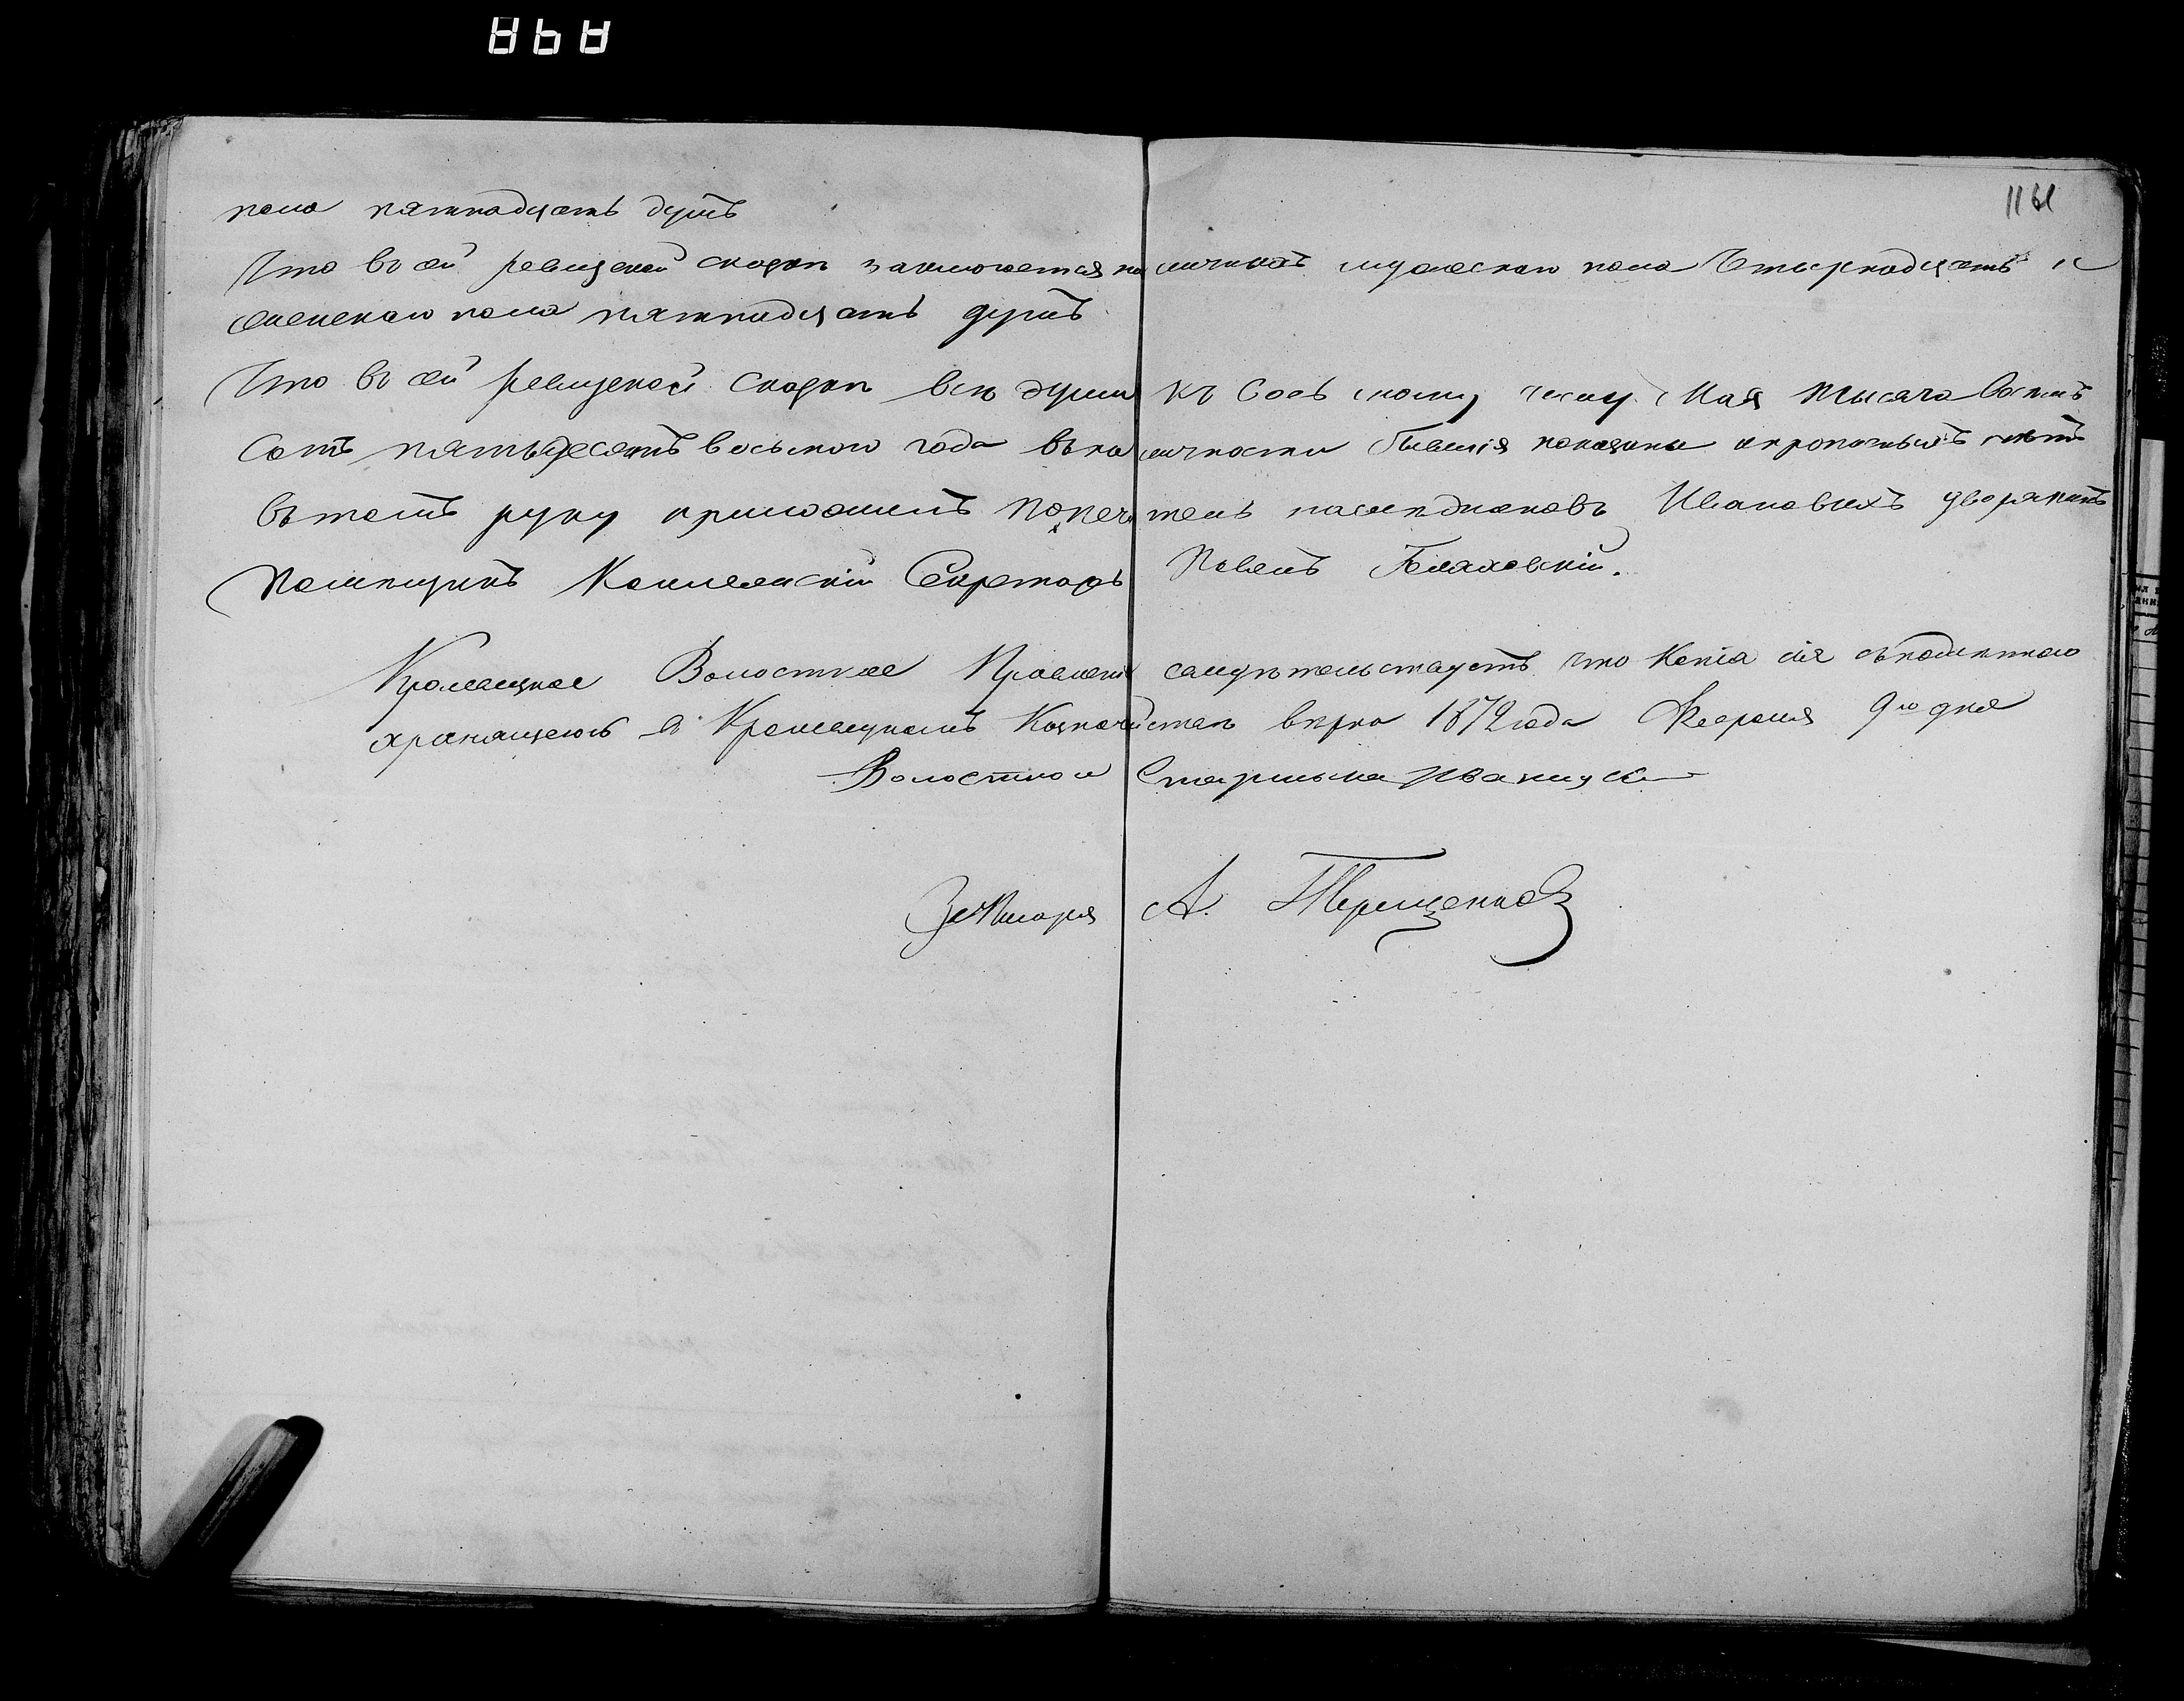 1161
пола пятнадцать душъ
Что въ сей ревизской сказкѣ заключается наличныхъ мужескаго пола четырнадцать и
женскаго пола пятнадцать душъ
Что въ сей ревизской сказкѣ всѣ души къ Мая тысяча восемь
сотъ пятьдесятъ восьмого года въ наличности бывшія показаны и прописныхъ нѣтъ
въ томъ руку приложилъ попечитель наслѣдниковъ Ивановыхъ дворянинъ
помѣщикъ Коллежскій Секретарь Павелъ Бляховскій.
Волостное Правленіе свидѣтельствуетъ что копія сія съ подлинною
хранящеюсь в Казначействѣ вѣрна 1872 года Февраля 9го дня
Волостной Старшина
За Писаря А. Терещенко